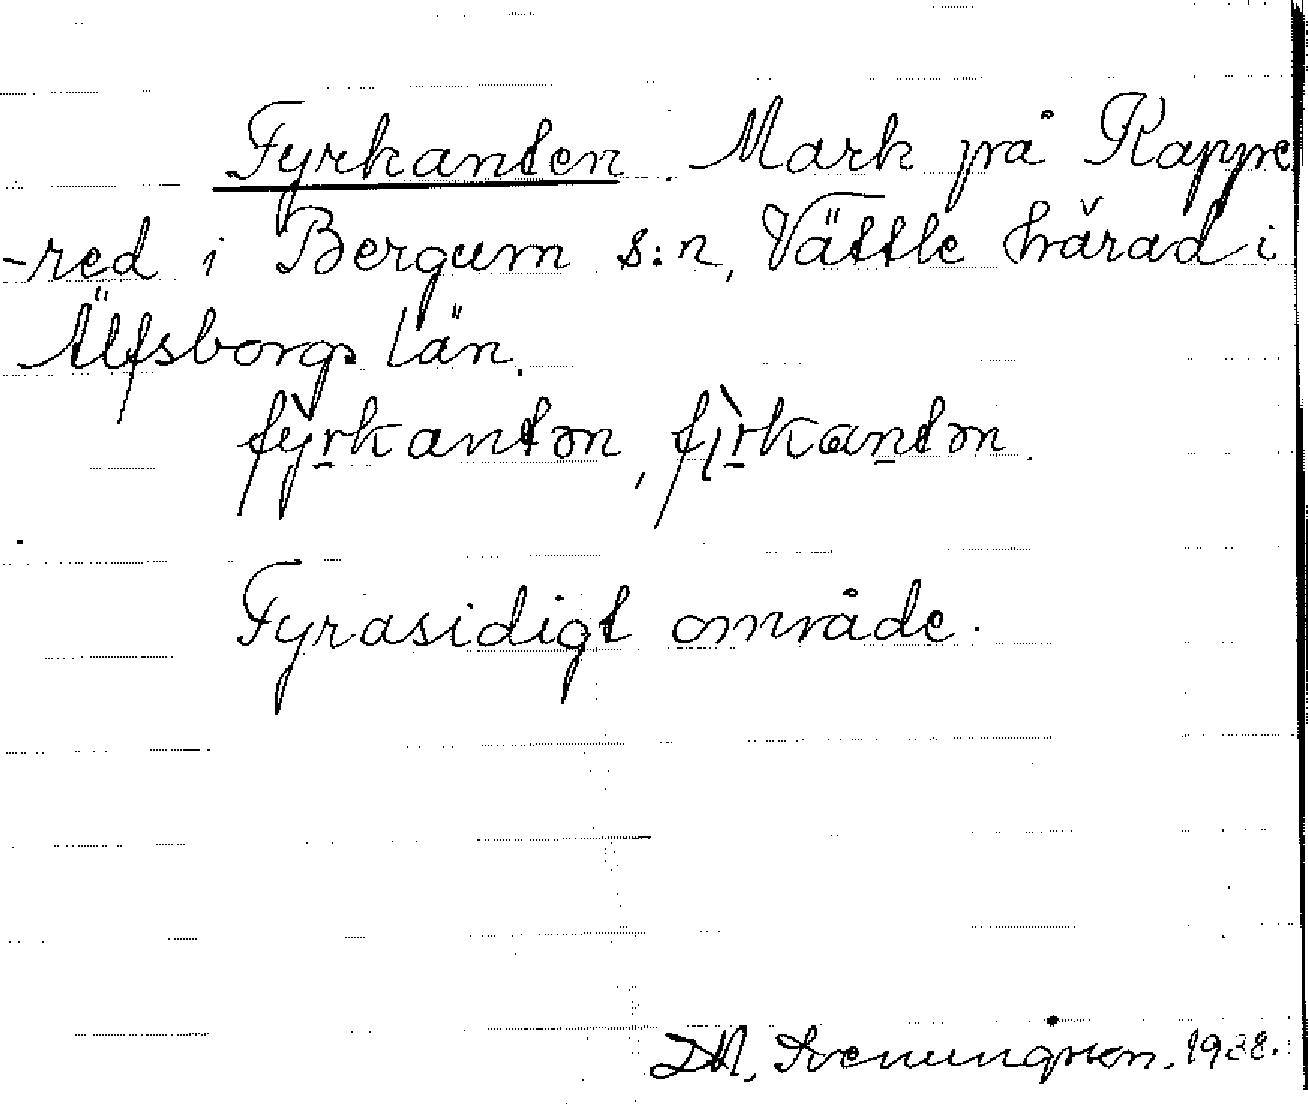 Fyrkanten. Mark på Rappe
-red i Bergum s:n, Vättle härad i
Älfsborgs län.
fỳrkantən, fỳrkantən.
Fyrasidigt område.
Svenungsson. 1938.